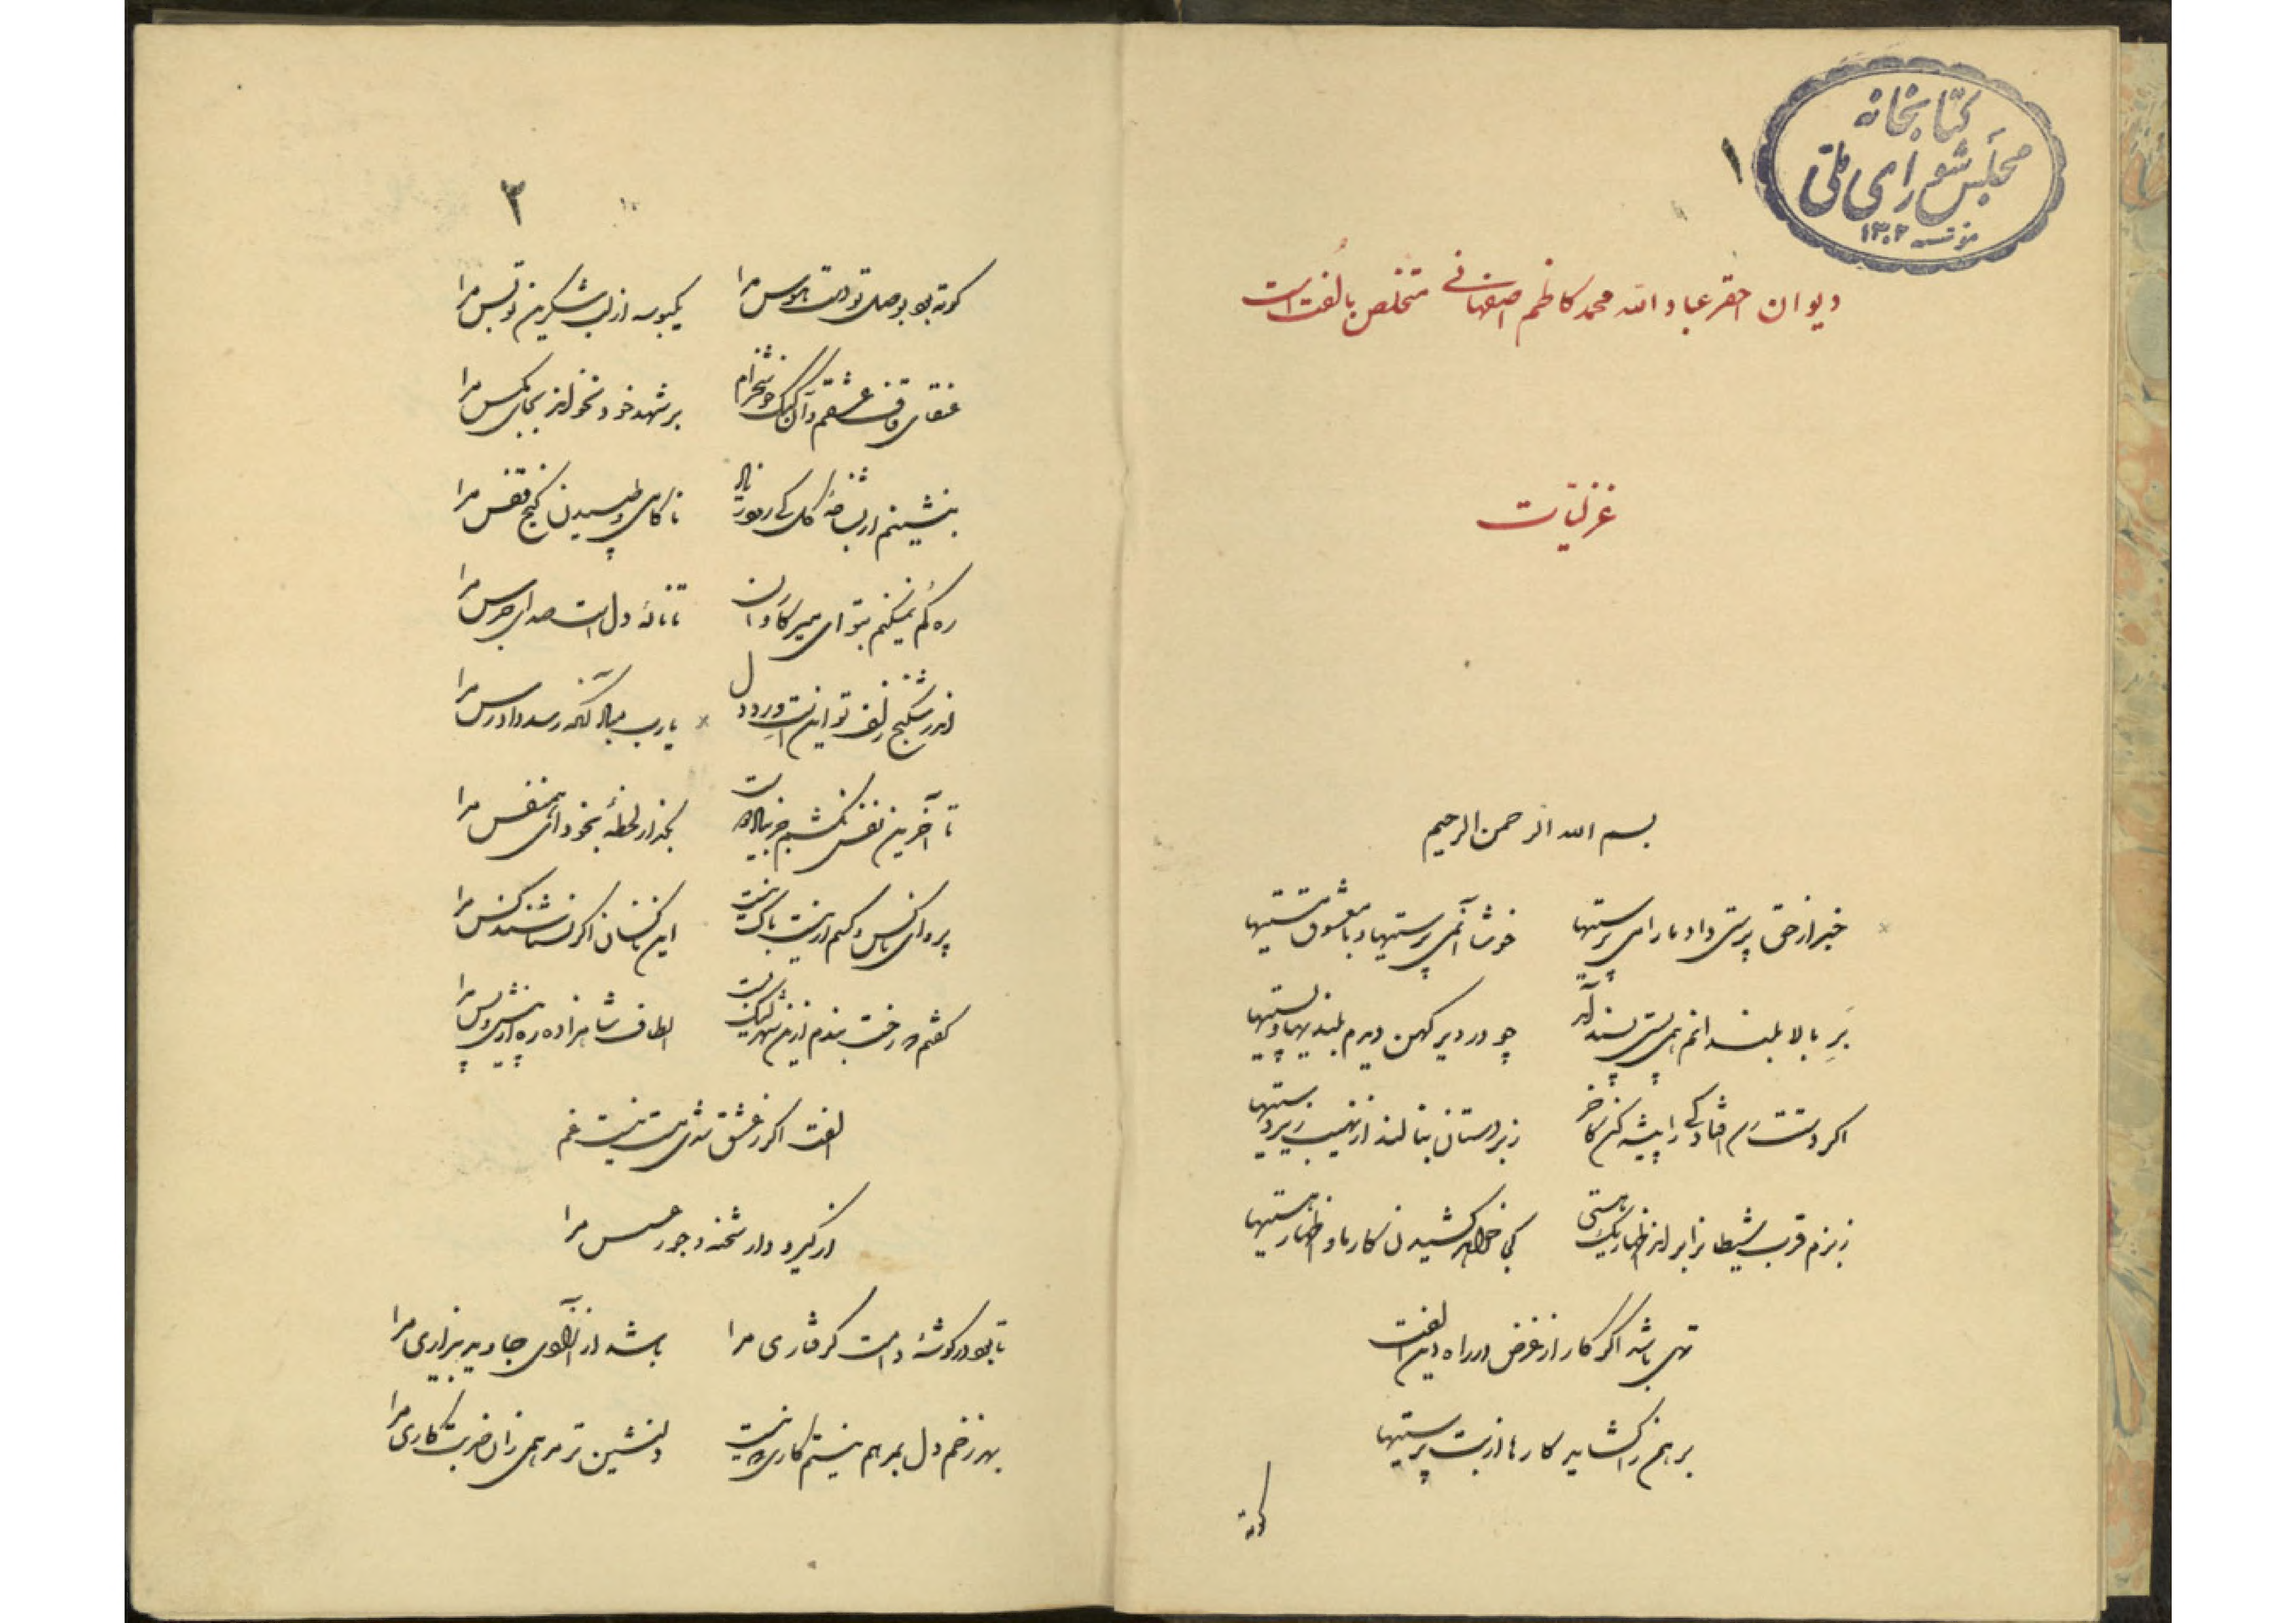 کتابخانه
مجلس شورای ملی
مؤسسه ۱۳۰۲
۱
دیوان احقر عباد الله محمد کاظم اصفهانی متخلص بالفت است
غزلیات
بسم الله الرحمن الرحیم
خبر از حق پرستی داد ما را می پرستیها خوشا آنمی پرستیها و با معشوق مستیها
برِ بالا بلندانم همی پستی پسند آید چو در دیر کهن دیدم بلندیها و پستیها
اکر دستت رسد افتادگی را پیشه کن کاخر زبردستان بنالند از نهیب زیردستیها
ز بزم قرب شیطانرا براند اظهار یک هستی کی خواهد کشیدن کار ما و اظهار هستیها
تهی باشد اکر کار از غرض در راه دین الفت
برهمن را گشاید کارها از بت پرستیها
کوته
۲
کوته بود بوصل تو دست هوس مرا یکبوسه از لب شکرین تو بس مرا
عنقای قاف عشقم و آن کبک خوشخرام بر شهد خود نخواند بجای مکس مرا
بنشینم ار بشاخهٔ کل کی رود ز یاد ناکامی و طپیدن کنج قفس مرا
ره کم نمیکنم بتو ای میر کاروان تا نالهٔ دل است صدای جرس مرا
اندر شکنج زلف تو اینست ورد دل یارب مباد آنکه رسد دادرس مرا
تا آخرین نفس نکشم جز بیاد دوست بگذار لحظهٔ بخود ای همنفس مرا
پروای ناکس و کسم ار نیست باک نیست این ناکسان اکر نشناسند کس مرا
کفتم که رخت بندم ازین شهر لیک نیست الطاف شاهزاده ره از پیش و پس مرا
الفت اکر ز عشق شدی مست نیست غم
از کیر و دار شحنه و جور عسس مرا
تا بود در کوشهٔ دامت کرفتاری مرا باشد از آزادی جاوید بیزاری مرا
بهر زخم دل بمرهم نیستم کاری که نیست دلنشین تر مرهمی زان ضربت کاری مرا